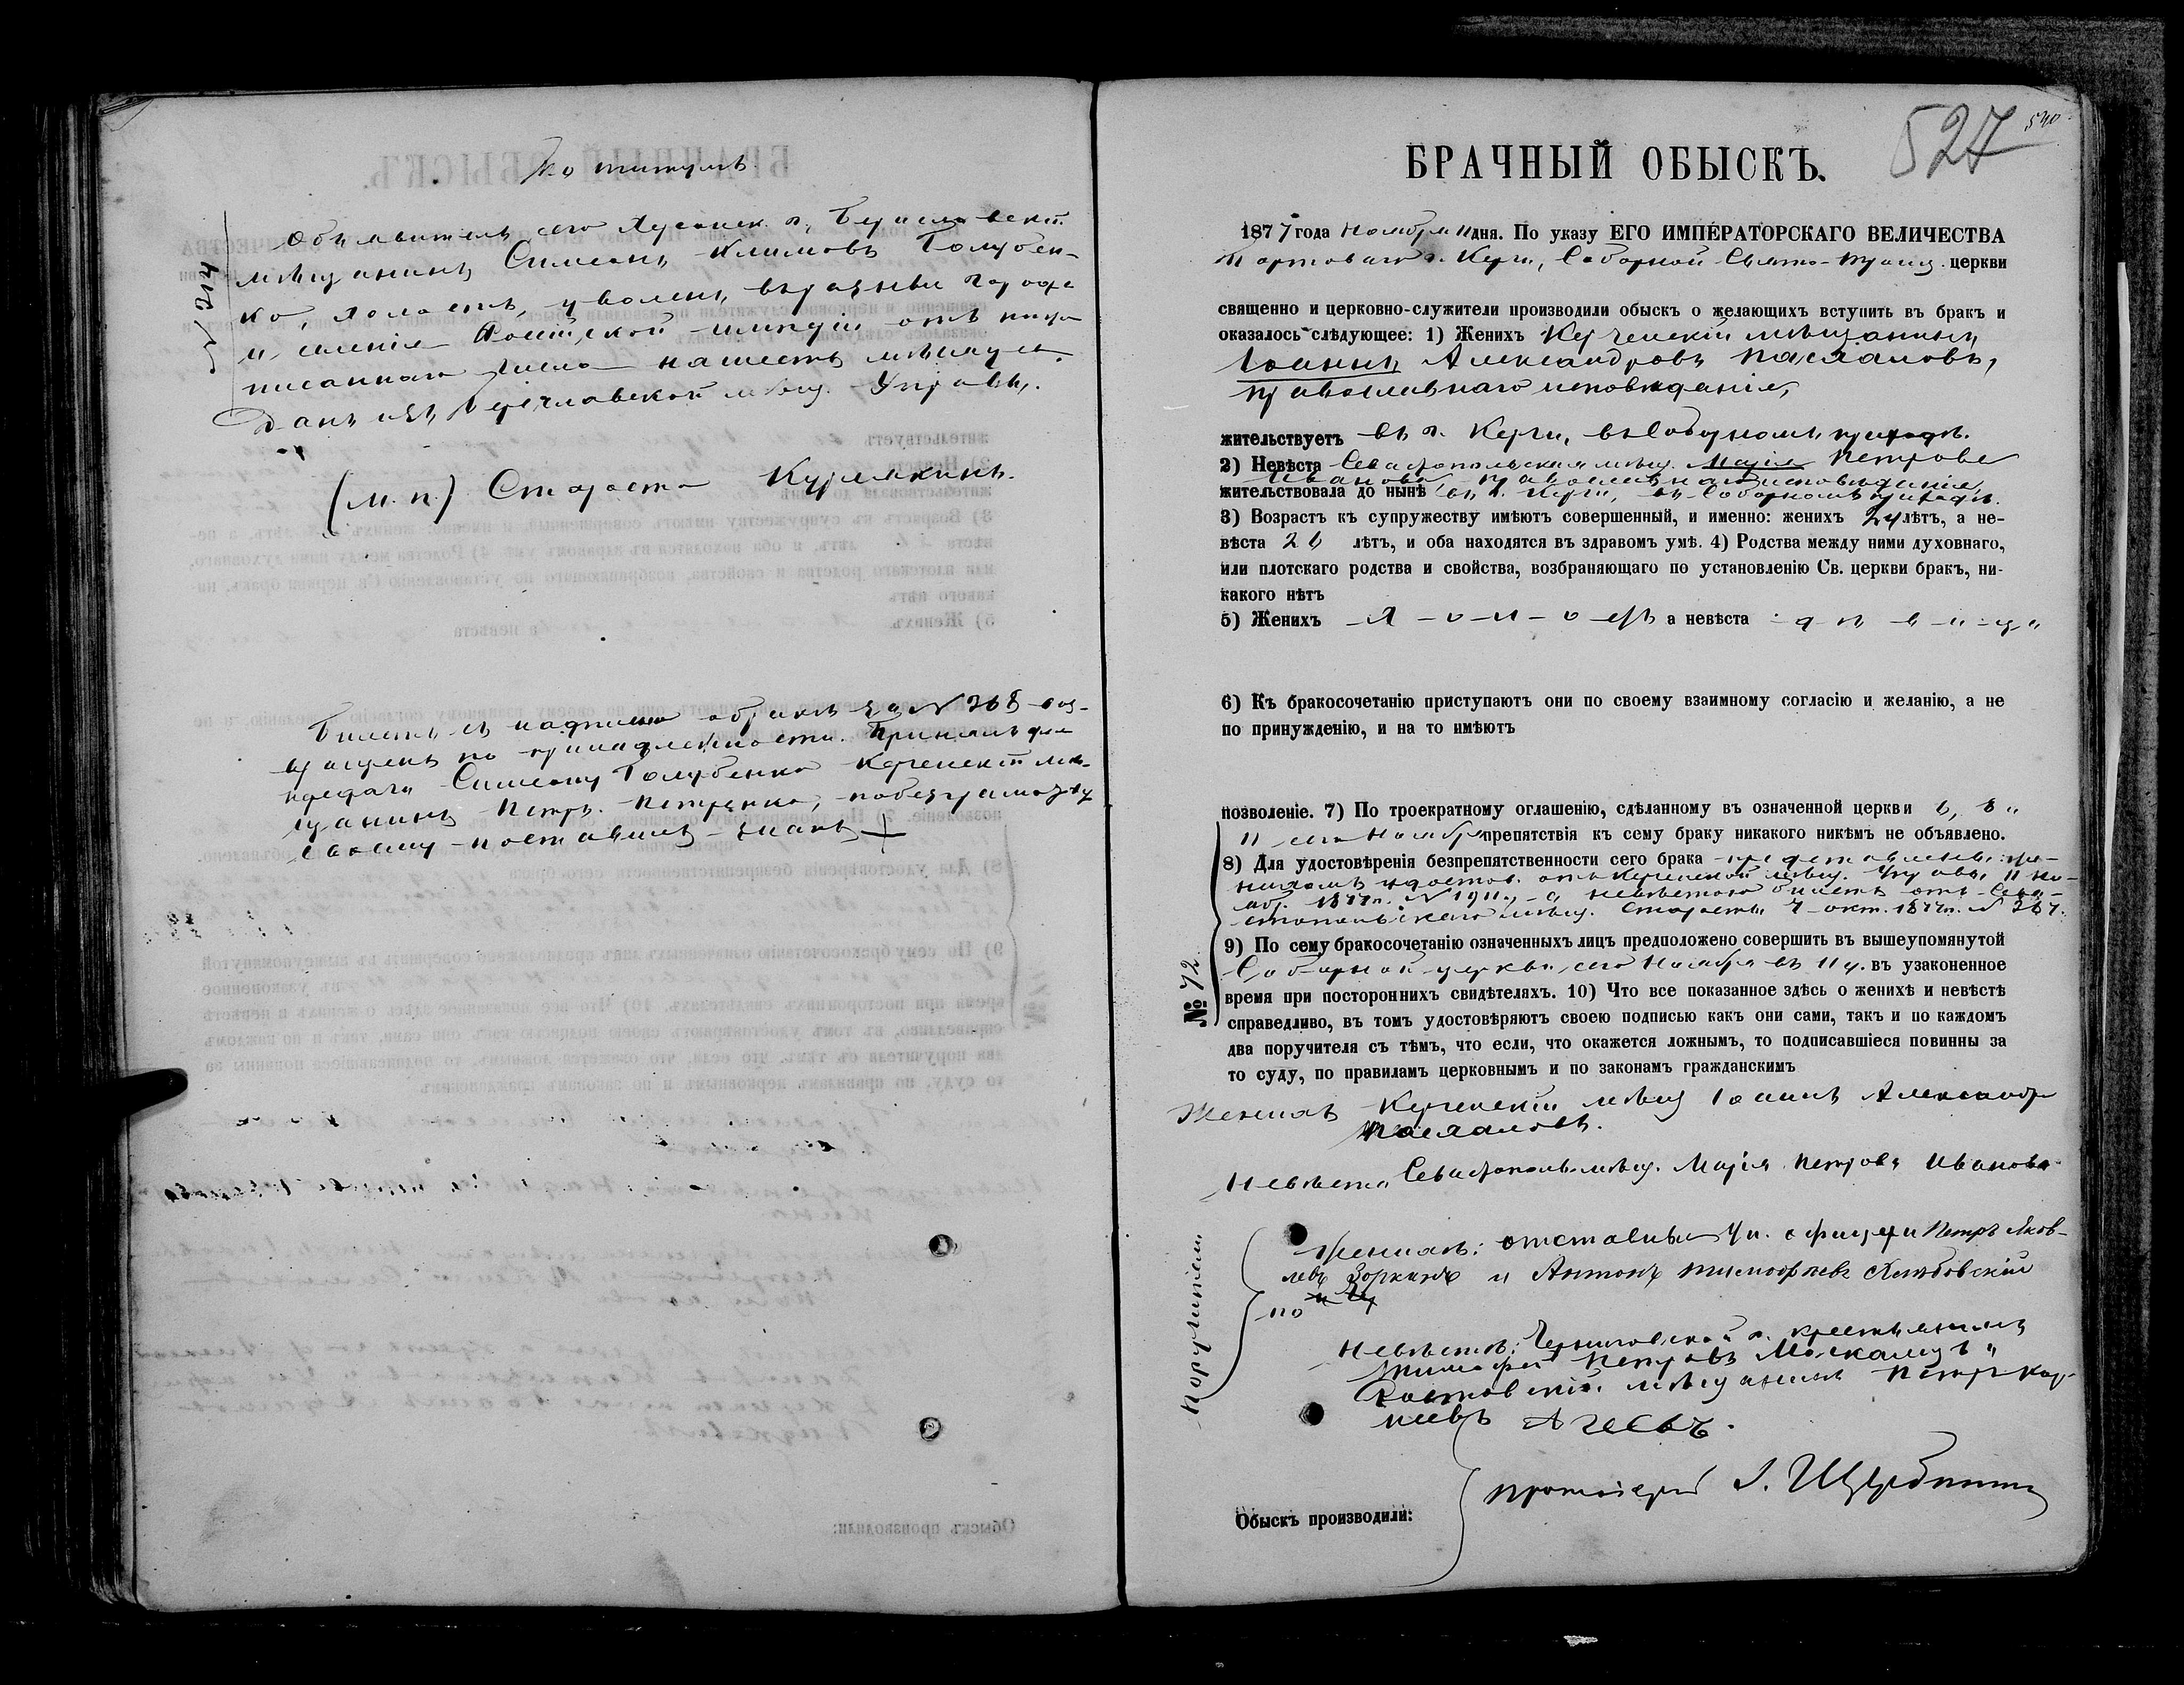 По титулѣ
№ 214
Объявитель сего Херсонск. г. Бериславскій
мѣщанинъ Симеонъ Климовъ Голубен-
ко, холостъ, уволенъ въ разные города
и селенія Россійской имперіи отъ ниже
писаннаго числа на шесть мѣсяцевъ.
Данъ изъ Бериславской мѣщ. Управы.
(М. п.) Староста
Билетъ съ надписью о бракѣ за № 268 воз-
вращенъ по принадлежности. Принялъ для
передачи Симеону Голубенко Керченскій мѣ-
щанинъ Петръ Петренко, по безграмотству
своему поставилъ знакъ +
527
540
БРАЧНЫЙ ОБЫСКЪ.
1877 года Ноября 11 дня. По указу ЕГО ИМПЕРАТОРСКАГО ВЕЛИЧЕСТВА
Портоваго г. Керчи, Соборной Свято-Троиц. церкви
священно и церковно-служители производили обыскъ о желающихъ вступить въ бракъ и
оказалось слѣдующее: 1) Женихъ Керченскій мѣщанинъ
Іоаннъ Александровъ Паслановъ,
православнаго исповѣданія,
жительствуетъ въ г. Керчи, въ Соборномъ приходѣ.
2) Невѣста Севастопольская мѣщ. Марія Петрова
Иванова, православнаго исповѣданія,
жительствовала до нынѣ въ г. Керчи, въ Соборномъ приходѣ.
3) Возрастъ къ супружеству имѣютъ совершенный, и именно: женихъ 24 лѣтъ, а не-
вѣста лѣтъ, и оба находятся въ здравомъ умѣ. 4) Родства между ними духовнаго,
или плотскаго родства и свойства, возбраняющаго по установленію Св. церкви бракъ, ни-
какого нѣтъ
5) Женихъ – х – о – л – о – стъ а невѣста – д – ѣ – в – и – ца
6) Къ бракосочетанію приступаютъ они по своему взаимному согласію и желанію, а не
по принужденію, и на то имѣютъ
позволеніе. 7) По троекратному оглашенію, сдѣланному въ означенной церкви 6, 8 и
11 сего Ноября препятствія къ сему браку никакого никѣмъ не объявлено.
8) Для удостовѣренія безпрепятственности сего брака представлены: же-
нихомъ удостов. отъ Керченской мѣщ. Управы 11 но-
ябр. 1877 г. № 1911, а невѣстою билетъ отъ Сева-
стопольскаго мѣщ. Старосты 7 окт. 1877 г. № 267.
9) По сему бракосочетанію означенныхъ лицъ предположено совершить въ вышеупомянутой
Соборной церкви, сего Ноября въ 11 ч. въ узаконенное
время при постороннихъ свидѣтеляхъ. 10) Что все показанное здѣсь о женихѣ и невѣстѣ
справедливо, въ томъ удостовѣряютъ своею подписью какъ они сами, такъ и по каждомъ
два поручителя съ тѣмъ, что если, что окажется ложнымъ, то подписавшіеся повинны за
то суду, по правиламъ церковнымъ и по законамъ гражданскимъ
№ 72
Женихъ Керченскій мѣщ Іоаннъ Александр
Паслановъ.
Невѣста Севастополь. мѣщ. Марія Петрова Иванова
Поручители
по
Женихѣ: отставные Ун. офицеры Петръ Яков-
левъ Зоркинъ и Антонъ Тимофѣевъ Хлѣбовскій
Невѣстѣ: Черниговской г. крестьянинъ
Тимофей Петровъ Москалецъ и
Ростовскій мѣщанинъ Петръ Кор-
неевъ Агеевъ.
Обыскъ производили:
Протоіерей І. Щербинин